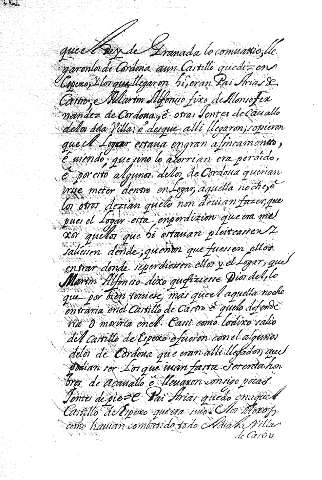 que el Rey de Granada lo combatio, lle
garonlos de Cordova a un Castillo que diz en
Espexo, E los que llegaron hi, eran Pai Arias de
Castro, e Martin Alfonso fixo de Alonso fer
nandez de Cordova, e otras Jentes de Cavallo
de los dela Villa: e desque alli llegaron, sopieron
que el Logar estava en gran afincamiento,
E viendo, que si no lo acorrian era perdido,
E por esto algunos delos de Cordova querian
meter dentro en Logar, aquella noche, e
los otros dezian que lo non devian fazer, que
pues el Logar esta en que era me
xor que los que hi estavan pleiteasen, e
saliesen dende, que non que fuesen ellos
entrar donde se perdiesen ellos y el Logar, que
Martin Alfonso dixo que fiziese Dios del, lo
que por bien toviese, mas que el aquella noche
entraria en el Castillo de Castro e que lo defende
ria o moriria en el. E ansi como lo dixo salio
del Castillo de Espexo e fueron con el algunos
delos de Cordova que eran alli llegados, que
podian ser los que ivan fasta sesenta hom
bres de acavallo e llevaron consigo pocas
Jentes de pie. E Pai Arias quedo en aquel
Castillo de Espexo que era suyo. E los Moros
como havian combatido todo Villa
de Castro